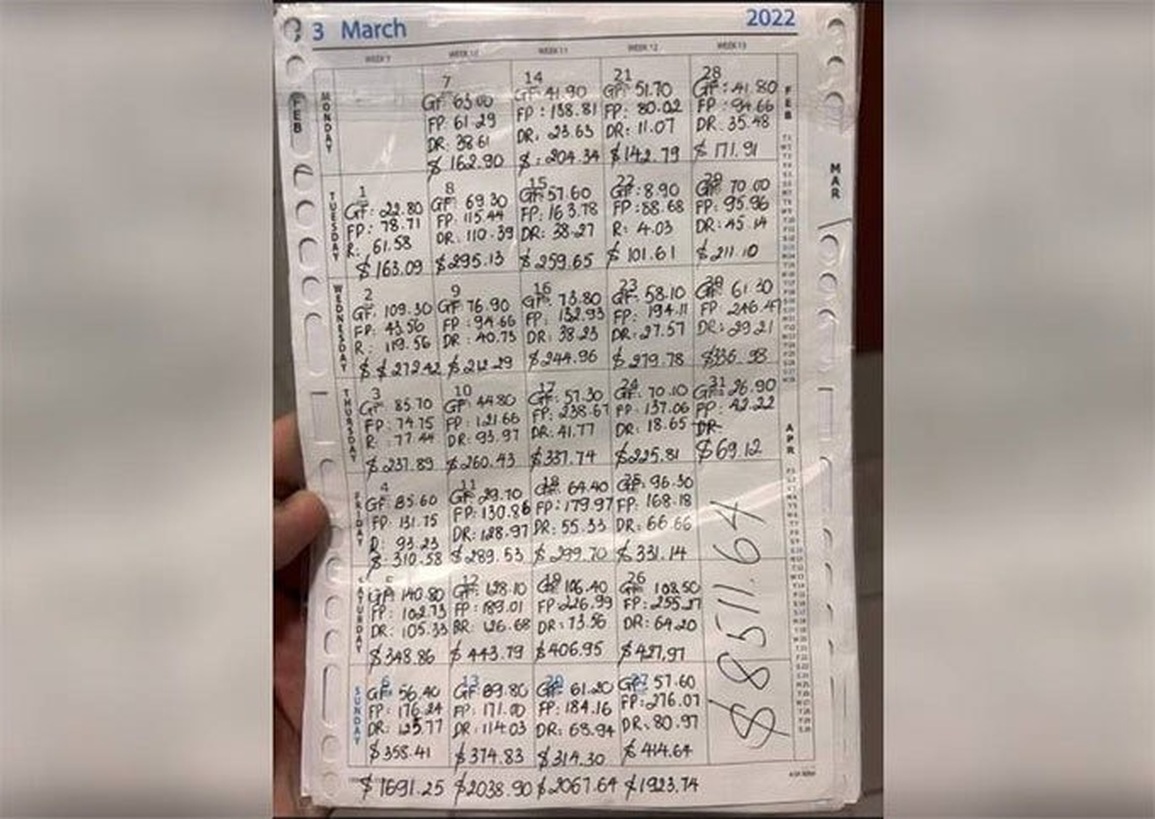 3 March 2022
WEEK 10 WEEK 11 WEEK 12 WEEK 13
FEB
MAR
APR
MONDAY
7
GF 63.00
FP: 61.29
DR: 38.61
$ 162.90
14
GF 41.90
FP: 138.81
DR. 23.63
$: 204.34
21
GF: 51.70
FP: 80.02
DR: 11.07
$142.79
28
GF: 41.80
FP: 94.66
DR. 35.48
$ 171.91
TUESDAY
1
GF: 22.80
FP: 78.71
R: 61.58
$163.09
8
GF: 69.30
FP: 115.44
DR: 110.39
$295.13
15
GF: 57.60
FP: 163.78
DR: 38.27
$259.65
22
GF: 8.90
FP: 88.68
R: 4.03
$ 101.61
29
GF: 70.00
FP: 95.96
DR: 45.14
$211.10
WEDNESDAY
2
GF. 109.30
FP: 43.56
R: 119.56
$ $ 272.42
9
GF 76.90
FP: 94.66
DR: 40.73
$ 212.29
16
GF: 73.80
FP: 132.93
DR: 38.23
$244.96
23
GF: 58.10
FP: 194.11
DR: 27.57
$ 279.78
30
GF: 61.30
FP: 246.47
DR: 29.21
$336.98
THURSDAY
3
GF: 85.70
FP: 74.75
R: 77.44
$237.89
10
GF: 44.80
FP: 121.66
DR: 93.97
$260.43
17
GF: 57.30
FP: 238.67
DR: 41.77
$337.74
24
GF: 70.10
FP: 137.06
DR: 18.65
$225.81
31
GF: 26.90
FP: 42.22
DR
$69.12
FRIDAY
4
GF: 85.60
FP: 131.75
R: 93.23
$: 310.58
11
GF: 29.70
FP: 130.86
DR: 128.97
$289.53
18
GF: 64.40
FP: 179.97
DR: 55.33
$299.70
25
GF: 96.30
FP: 168.18
DR: 66.66
$331.14
SATURDAY
GF: 140.80
FP: 102.73
DR: 105.33
$348.86
12
GF: 128.10
FP: 189.01
DR: 126.68
$ 443.79
19
GF: 106.40
FP: 226.99
DR: 73.56
$406.95
26
GF: 108.50
FP: 255.27
DR: 64.20
$427.97
SUNDAY
6
GF: 56.40
FP: 176.24
DR: 125.77
$358.41
13
GF: 89.80
FP: 171.00
DR: 114.03
$374.83
20
GF: 61.20
FP: 184.16
DR: 68.94
$314.30
27
GF: 57.60
FP: 276.07
DR: 80.97
$ 414.64
$8511.64
$1691.25 $2038.90 $2067.64 $1923.74